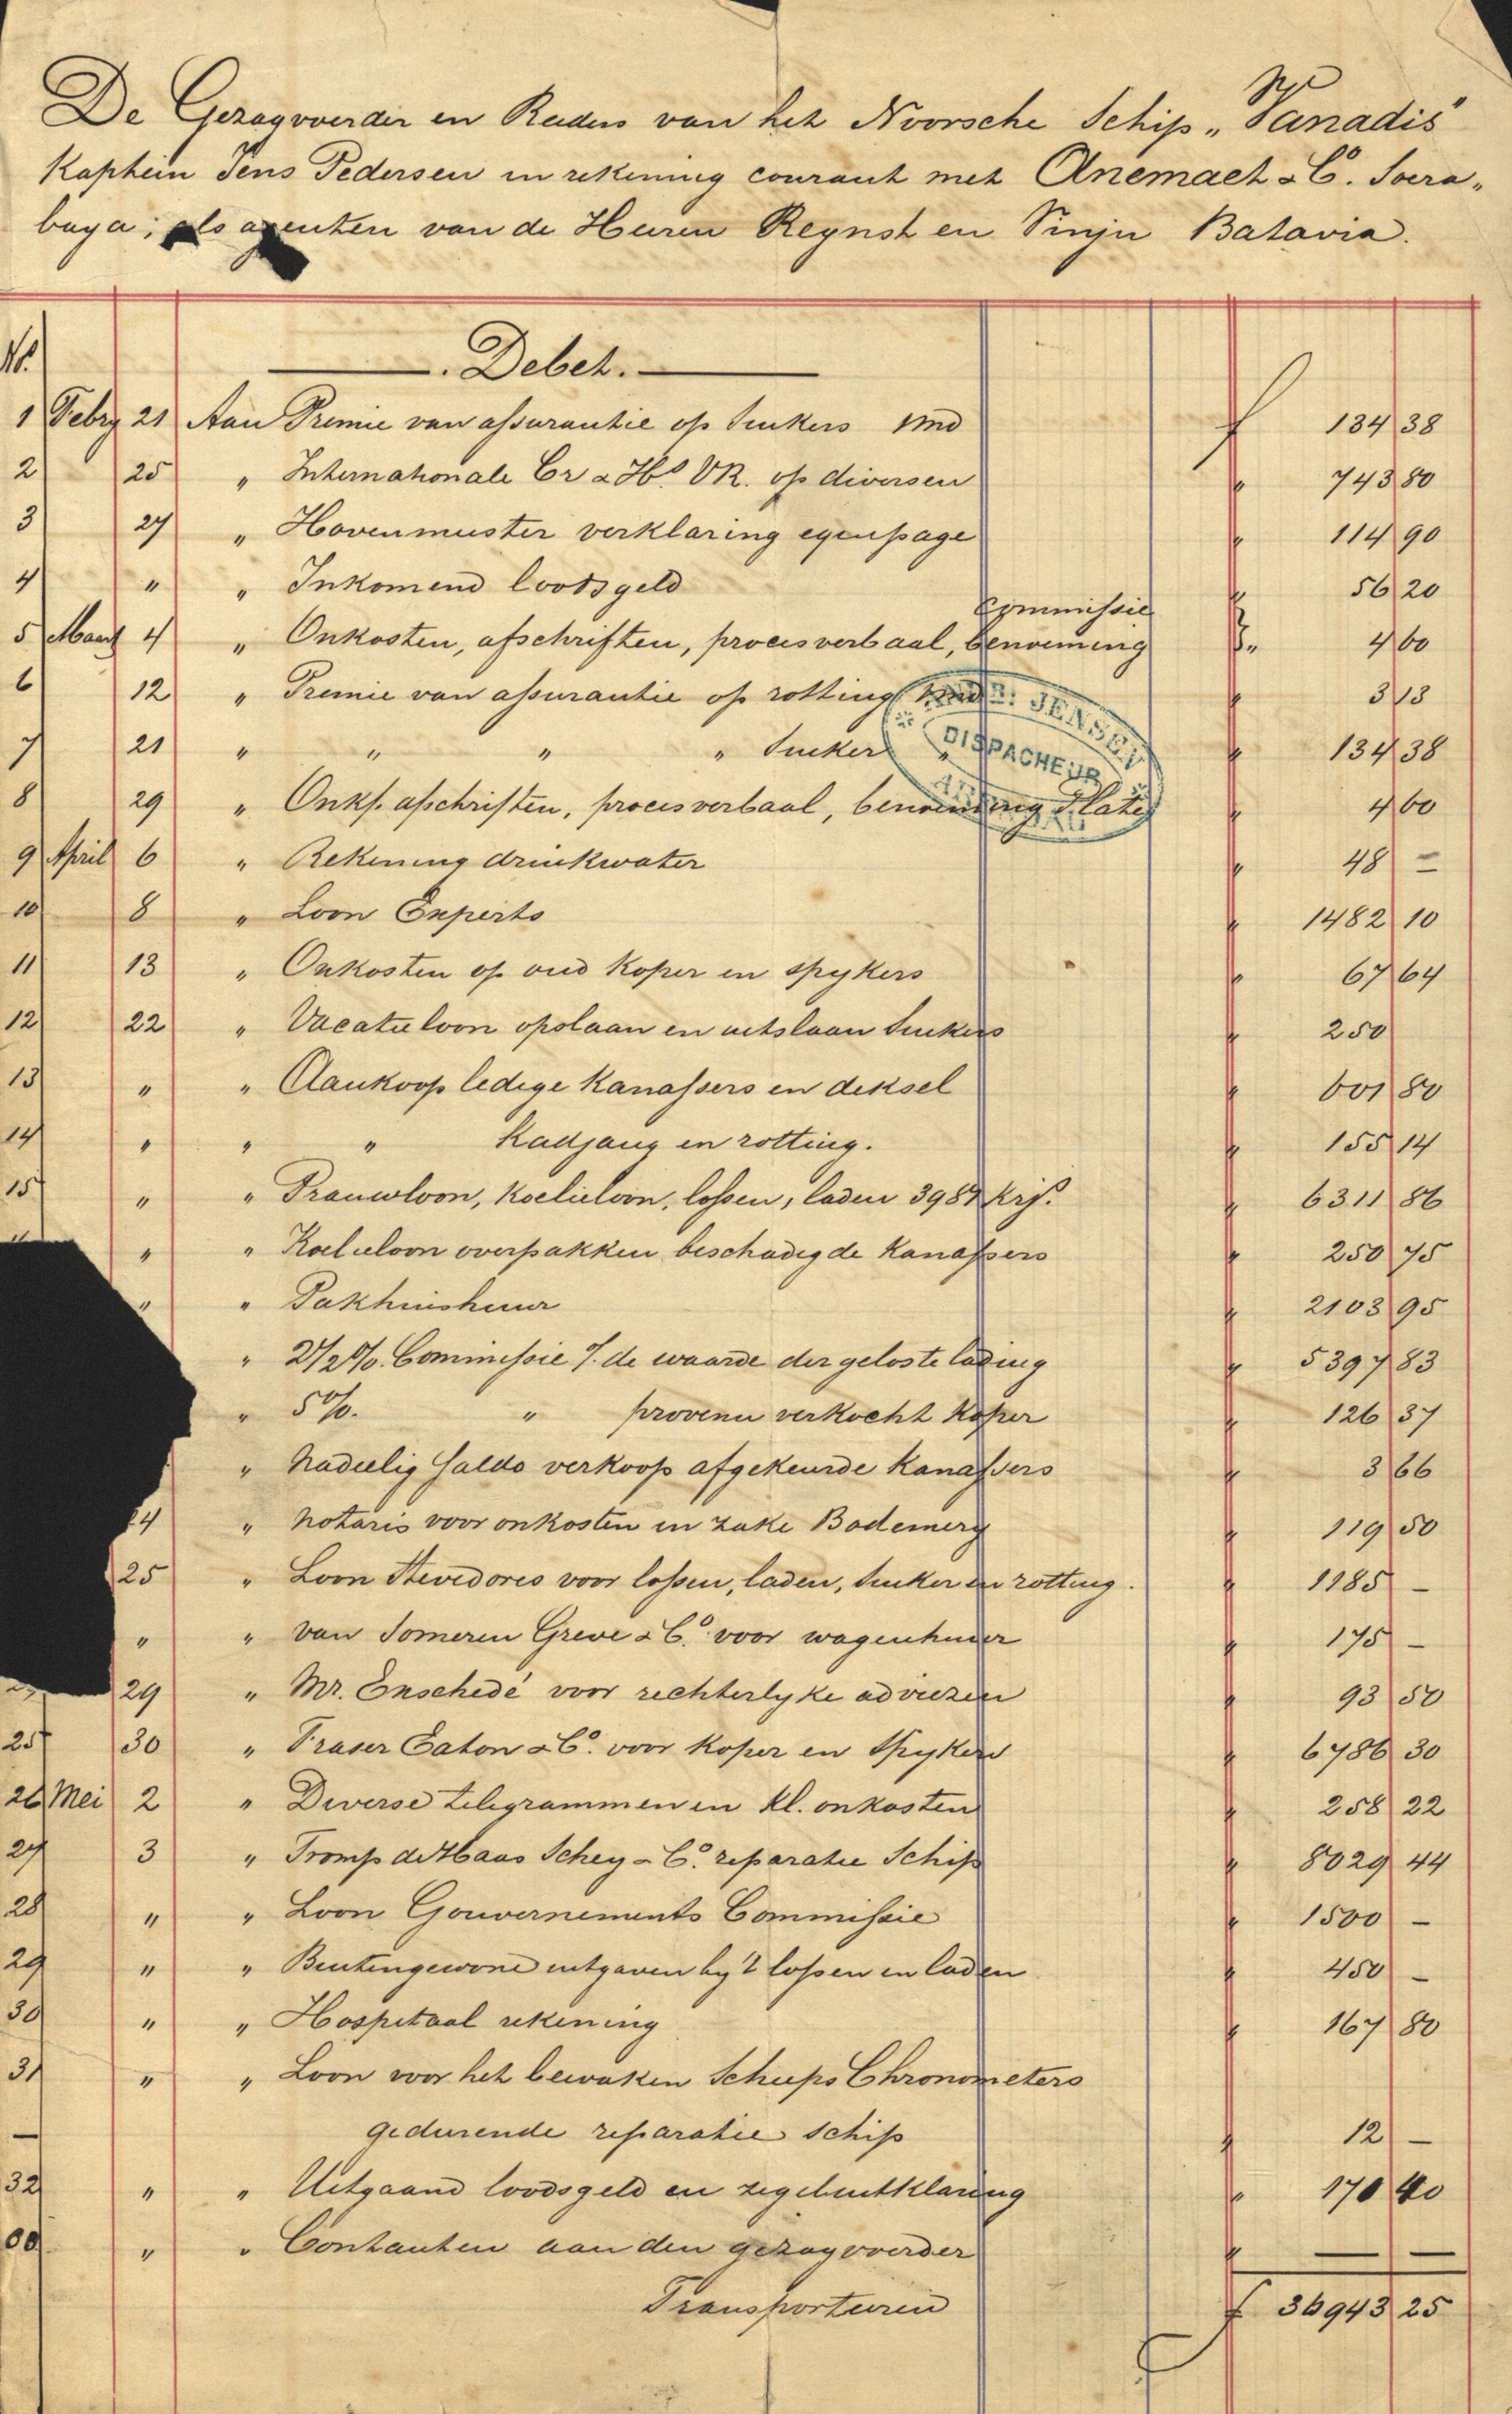 De Gezagvoerder en Reeders van het Noorsche Schip „Vanadis"
Kaptein Jens Pedersen in rekening courant met Anemaet & Co. Soera„
baya; als agenten van de Heeren Reynst en Vinju Batavia.
No. Debet.
1 Febry 21 Aan Premie van assurantie op Suikers f 134 38
2 25 „ Internationale Cr & Hs. VR. op diversen „ 743 80
3 27 „ Havenmeester verklaring egenpage „ 114 90
4 „ „ Inkomend loodsgeld „ 56 20
commissie
5 Maart 4 „ Onkosten, afschriften, procesverbaal, benoeming „ 4 60
6 12 „ Premie van assurantie op rotting „ 3 13
7 21 „ „ „ „ Suiker „ „ 134 38
8 29 „ Onks. afschriften, procesverbaal, benoeming „ 4 60
9 April 6 „ Rekening drinkwater „ 48 =
10 8 „ Loon Experts „ 1482 10
11 13 „ Onkosten op oud koper en spykers „ 67 64
12 22 „ Vacatieloon opslaan en uitslaan Suikers „ 250
13 „ „ Aankoop ledige Kanassers en deksel „ 601 80
14 „ „ „ Kadjang en rotting. „ 155 14
15 „ „ Prauwloon, Koelieloon, lossen, laden 3987 Krjs. „ 6311 86
„ „ Koelieloon overpakken beschadigde Kanassers „ 250 75
„ „ Pakhuishuur „ 2103 95
„ 2½%. Commissie %. de waarde der geloste lading „ 5397 83
„ 5%. „ provenu verkocht koper „ 126 37
„ Nadeelig Saldo verkoop afgekeurde Kanassers „ 3 66
24 „ Notaris voor onkosten in zake Bodemery „ 119 50
25 „ Loon Stevedores voor lossen, laden, Suiker en rotting. „ 1185 –
„ „ van Someren Greve & Co. voor wagenhuur „ 175 –
29 „ Mr. Enschedé voor rechterlyke adviezen „ 93 50
25 30 „ Fraser Eaton & Co. voor koper en Spykers „ 6786 30
26 Mei 2 „ Diverse telegrammen en kl. onkosten „ 258 22
27 3 „ Tromp de Haas Schey & Co. reparatie Schip „ 8029 44
28 „ „ Loon Gouvernements Commissie „ 1500 –
29 „ „ Buitengewone uitgaven by 't lossen en laden „ 450 –
30 „ „ Hospitaal rekening „ 167 80
31 „ „ Loon voor het bewaken Scheeps Chronometers
— gedurende reparatie schip „ 12 –
32 „ „ Uitgaand loodsgeld en zegel uitklaring „ 170 40
„ „ Contanten aan den gezagvoerder „ — —
Transporteeren f 36943 25
JENSEN
DISPACHEUR